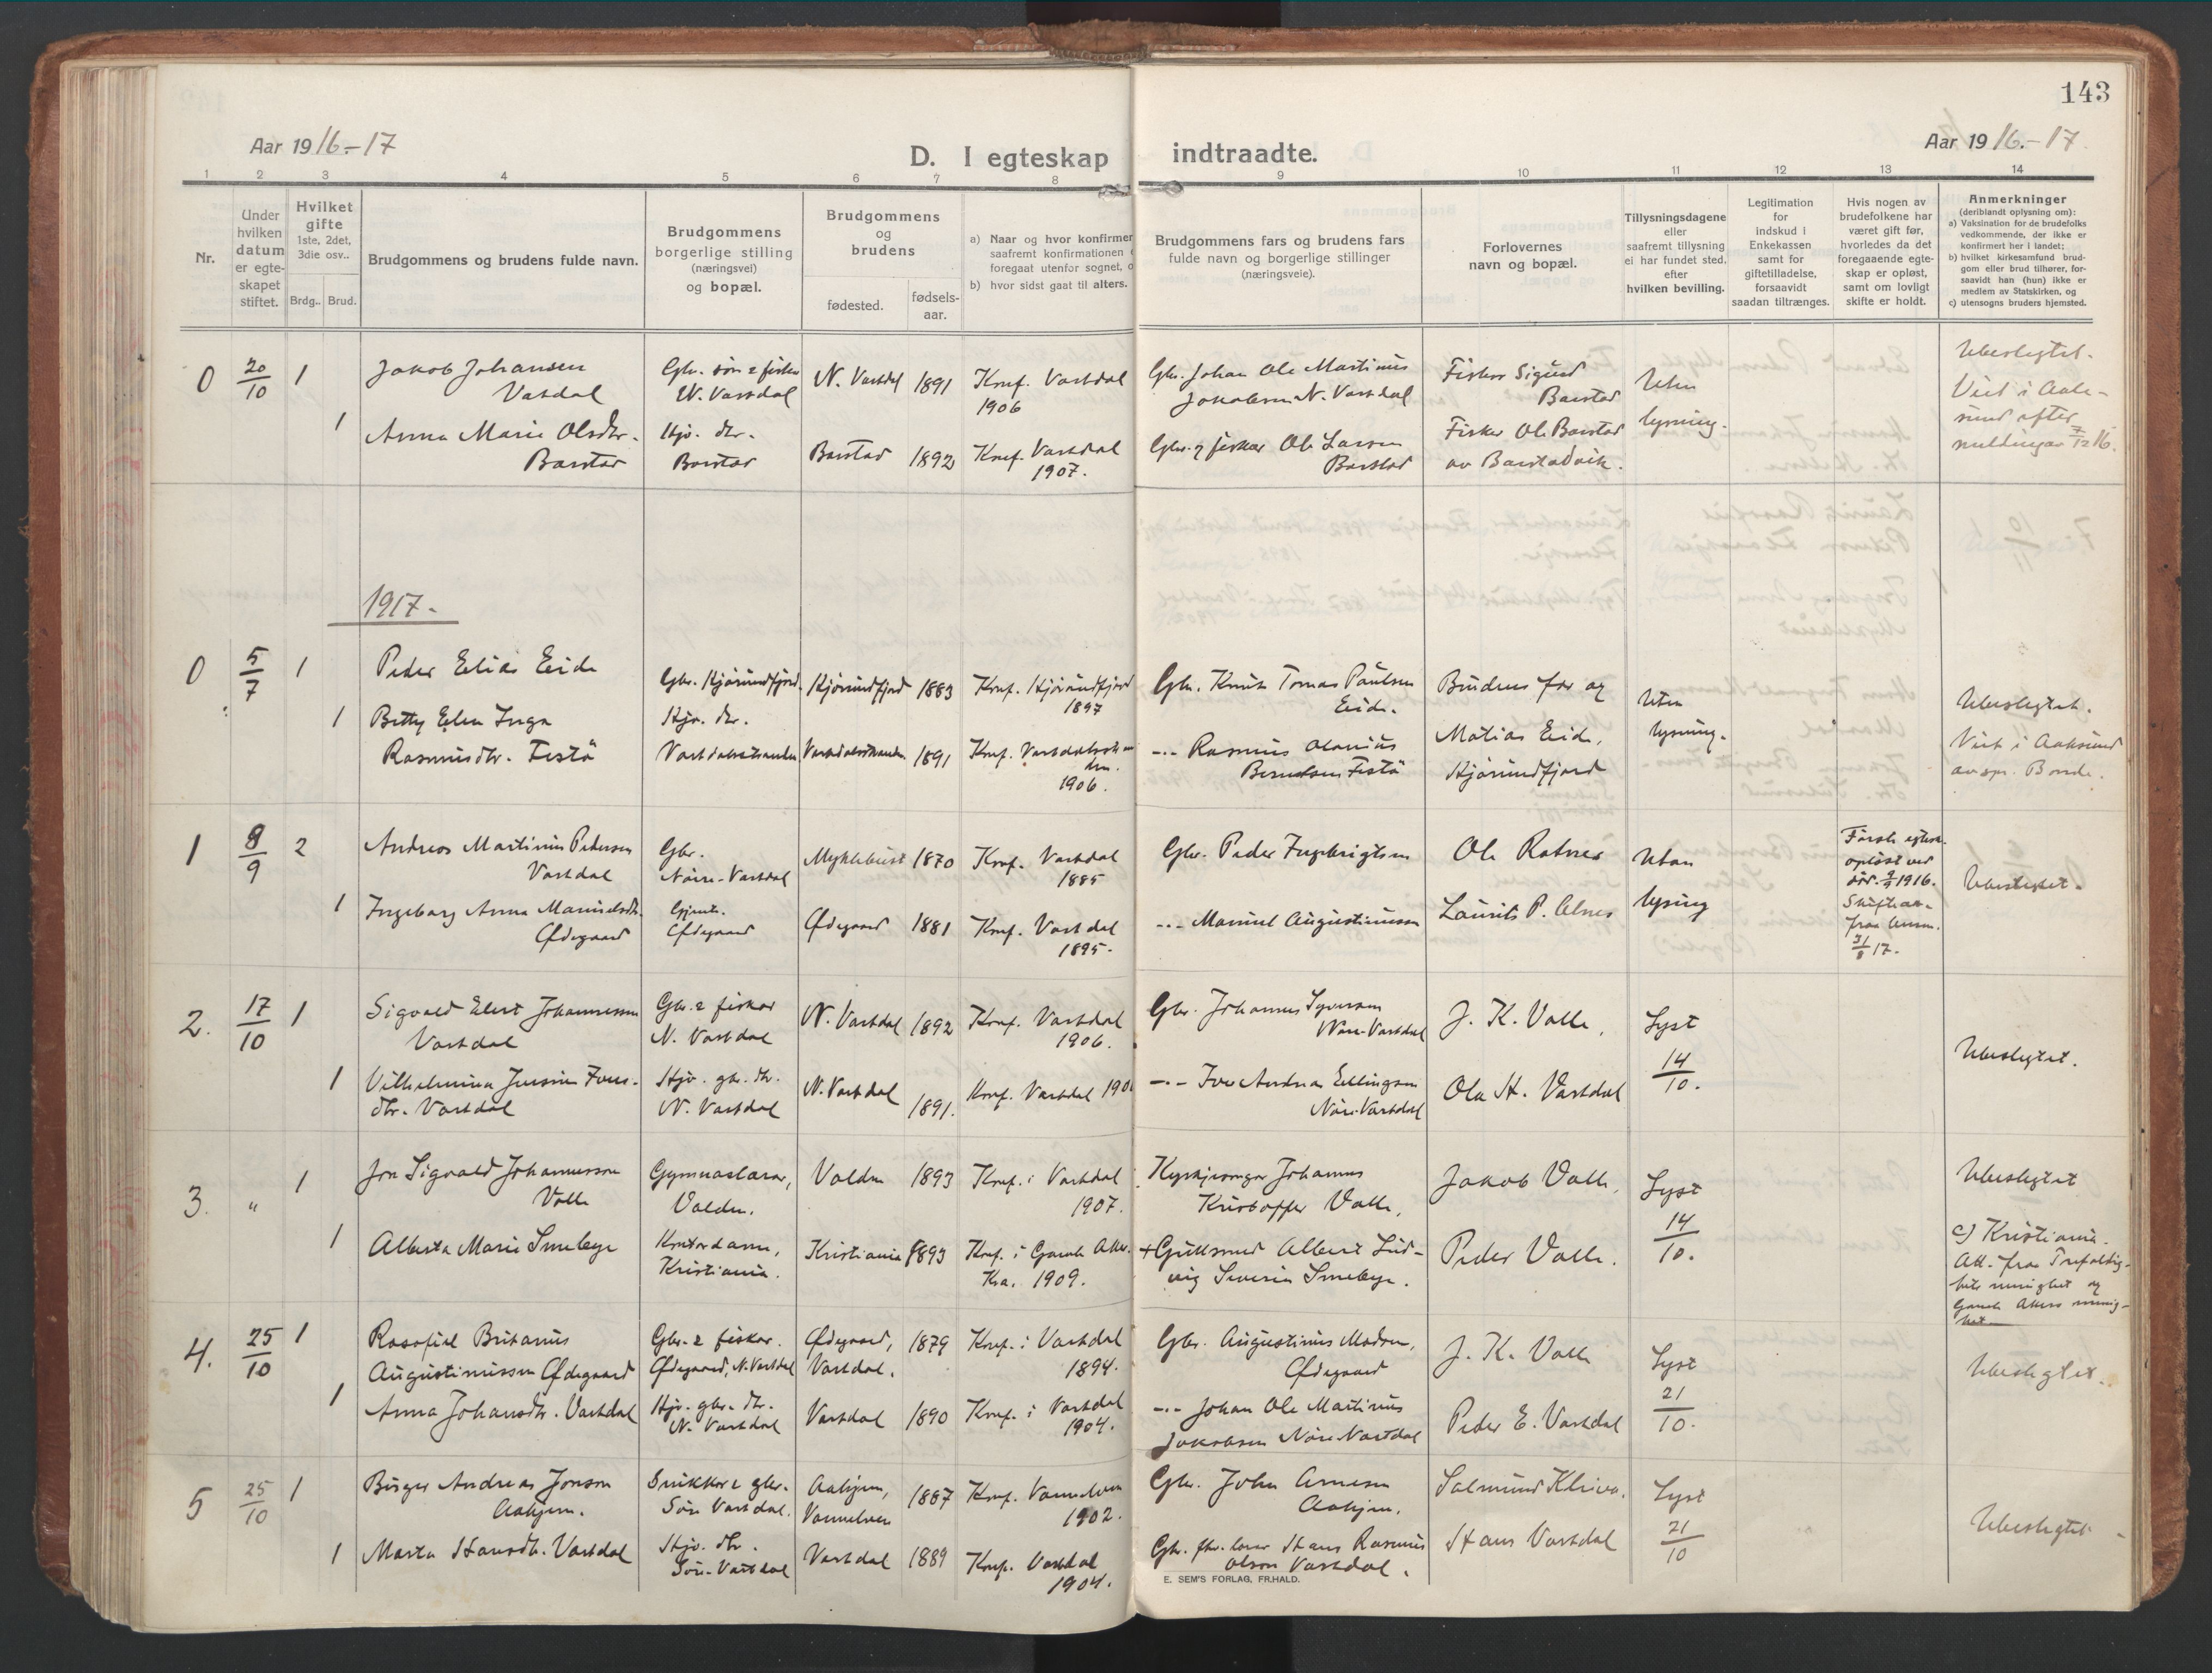 143
Aar 1916.-17
D. I egteskap indtraadte.
Aar 1916.-17.
1 2 3 4 5 6 7 8 9 10 11 12 13 14
Nr.
Under hvilken datum er egte-skapet stiftet.
Hvilket gifte
1ste, 2det, 3die osv..
Brdg.. Brud.
Brudgommens og brudens fulde navn.
Brudgommens borgerlige stilling (næringsvei) og bopæl.
Brudgommens og brudens
fødested. fødsels-aar.
a) Naar og hvor konfirmer
saafremt konfirmationen
foregaat utenfor sognet, o
b) hvor sidst gaat til alters.
Brudgommens fars og brudens fars
fulde navn og borgerlige stillinger
(næringsveie).
Forlovernes
navn og bopæl.
Tillysningsdagene
eller
saafremt tillysning
ei har fundet sted,
efter
hvilken bevilling.
Legitimation
for
indskud i
Enkekassen
samt for
giftetilladelse,
forsaavidt
saadan tiltrænges.
Hvis nogen av
brudefolkene har
været gift før,
hvorledes da det
foregaaende egte-
skap er opløst,
samt om lovligt
skifte er holdt.
Anmerkninger
(deriblandt oplysning om):
a) Vaksination for de brudefolks
vedkommende, der ikke er
konfirmert her i landet;
b) hvilket kirkesamfund brud-
gom eller brud tilhører, for-
saavidt han (hun) ikke er
medlem av Statskirken, og
c) utensogns bruders hjemsted.
0 20/10 1
Jakob Johansen
Vatdal
Gbr. søn & fisker
N. Vartdal
N. Vartdal 1891
Konf. Vartdal
1906
Gbr. Johan Ole Martinus
Jakobsen N. Vartdal
Fisker Sigurd
Barstad
Uten
lysning.
Ubeslegtet.
Viet i Aale-
sund efter
meldingar 7/12 16.
1
Anna Marie Olsdtr.
Barstad
Hjv. dtr.
Barstad
Barstad 1892
Konf. Vartdal
1907.
Gbr. & fisker Ole Larsen
Barstad
Fisker Ole Barstad
av Barstadvik.
1917.
0 5/7 1
Peder Elias Eide
Gbr. Hjørundfjord.
Hjørundfjord 1883
Konf. Hjørundfjord
1897
Gbr. Knut Tomas Paulsen
Eide.
Brudens far og
Matias Eide,
Hjørundfjord
Uten
lysning.
Ubeslegtet.
Viet i Aalesund
av spr. Bonde.
1
Betty Elen Inga
Rasmusdtr. Festø
Hjv. dtr.
Vartdalsstranden
Vartdalsstranden 1891
1906.
-"- Rasmus Olavius
Berntsen Festø
1 8/9 2
Andreas Martinus Pedersen
Vartdal
Gbr.
Nøre-Vartdal
Myklebust 1870
Konf. Vartdal
1885
Gbr. Peder Ingebrigtsen
Ole Rotnes
Utan
lysing
Første egtesk.
opløst ved
død 2/9 1916.
Skifteat.
fraa
31/8 17.
Ubeslegtet.
1
Ingeborg Anna Manuelsdtr.
Ødegaard
Gjente.
Ødegaard
Ødegaard 1881
Konf. Vartdal
1895.
-"- Manuel Augustinussen
Laurits P. Alnes
2. 17/10 1
Sigvald Elert Johannessen
Vartdal
Gbr. & fiskar
N. Vartdal
N. Vartdal 1892
Konf. Vartdal
1906.
Gbr. Johannes Syversen
Nøre-Vartdal
J. K. Valle,
Lyst
14/10.
Ubeslegtet.
1
Vilhelmina Jensine Ivers-
dtr. Vartdal
Hjv. gbr. dtr.
N. Vartdal
N. Vartdal 1891.
Konf. Vartdal 190
-"- Iver Andreas Ellingsen
Nøre-Vartdal
Ola H. Vartdal
3. " 1
Jon Sigvald Johannesson
Valle
Gymnaslærar,
Volden.
Volden 1893
Konf. i Vartdal
1907.
Kyrkjesongar Johannes
Kristoffer Valle,
Jakob Valle,
Lyst
14/10.
Ubeslegtet
1
Alberta Marie Smebye
Kontordame,
Kristiania.
Kristiania 1893
Konf. i Gamle Aker.
Kra. 1909.
+Gullsmed Albert Lud-
vig Severin Smebye.
Peder Valle.
c) Kristiania.
Att. fraa Trefoldig-
hets menighet og
Gamle Akers menig-
het
4. 25/10 1
Rasofiel Britanus
Augustinussen Ødegaard
Gbr. & fiskar.
Ødegaard, N. Vartdal
Ødegaard,
Vartdal. 1879
Konf. i Vartdal
1894.
Gbr. Augustinus Madsen,
Ødegaard
J. K. Valle
Lyst
21/10.
Ubeslegtet.
1
Anna Johansdtr. Vartdal
Hjv. gbr. dtr.
N. Vartdal
Vartdal 1890
Konf. i Vartdal
1904.
-"- Johan Ole Martinus
Jakobsen Nøre-Vartdal
Peder E. Vartdal
5 25/10 1
Birger Andreas Jonson
Aahjem.
Snikkar & gbr.
Søre Vartdal.
Aahjem,
Vannelven 1887
Konf. Vannelven
1902.
Gbr. John Arnesen
Aahjem.
Salmund Kleiva.
Lyst
21/10
Ubeslegtet
1
Marta Hansdtr. Vartdal
Hjv. dtr.
Søre-Vartdal
Vartdal 1889
Konf. Vartdal
1904.
Gbr. fhv. lærar Hans Rasmus
Olson Vartdal.
Hans Vartdal
E. SEM'S FORLAG, FR.HALD.